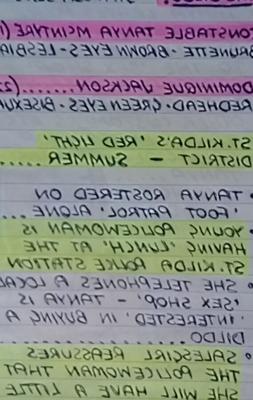 CONSTABLE TANYA McINTYRE (
BRUNETTE - BROWN EYES - LESBIA
DOMINIQUE JACKSON........(2
REDHEAD - GREEN EYES - BISEXU
ST. KILDA'S 'RED LIGHT'
DISTRICT - SUMMER.....
• TANYA ROSTERED ON
'FOOT PATROL' ALONE...
• YOUNG POLICEWOMAN IS
HAVING 'LUNCH' AT THE
ST. KILDA POLICE STATION
• SHE TELEPHONES A LOCAL
'SEX SHOP' - TANYA IS
'INTERESTED' IN BUYING A
DILDO.......
• SALESGIRL REASSURES
THE POLICEWOMAN THAT
SHE WILL HAVE A LITTLE